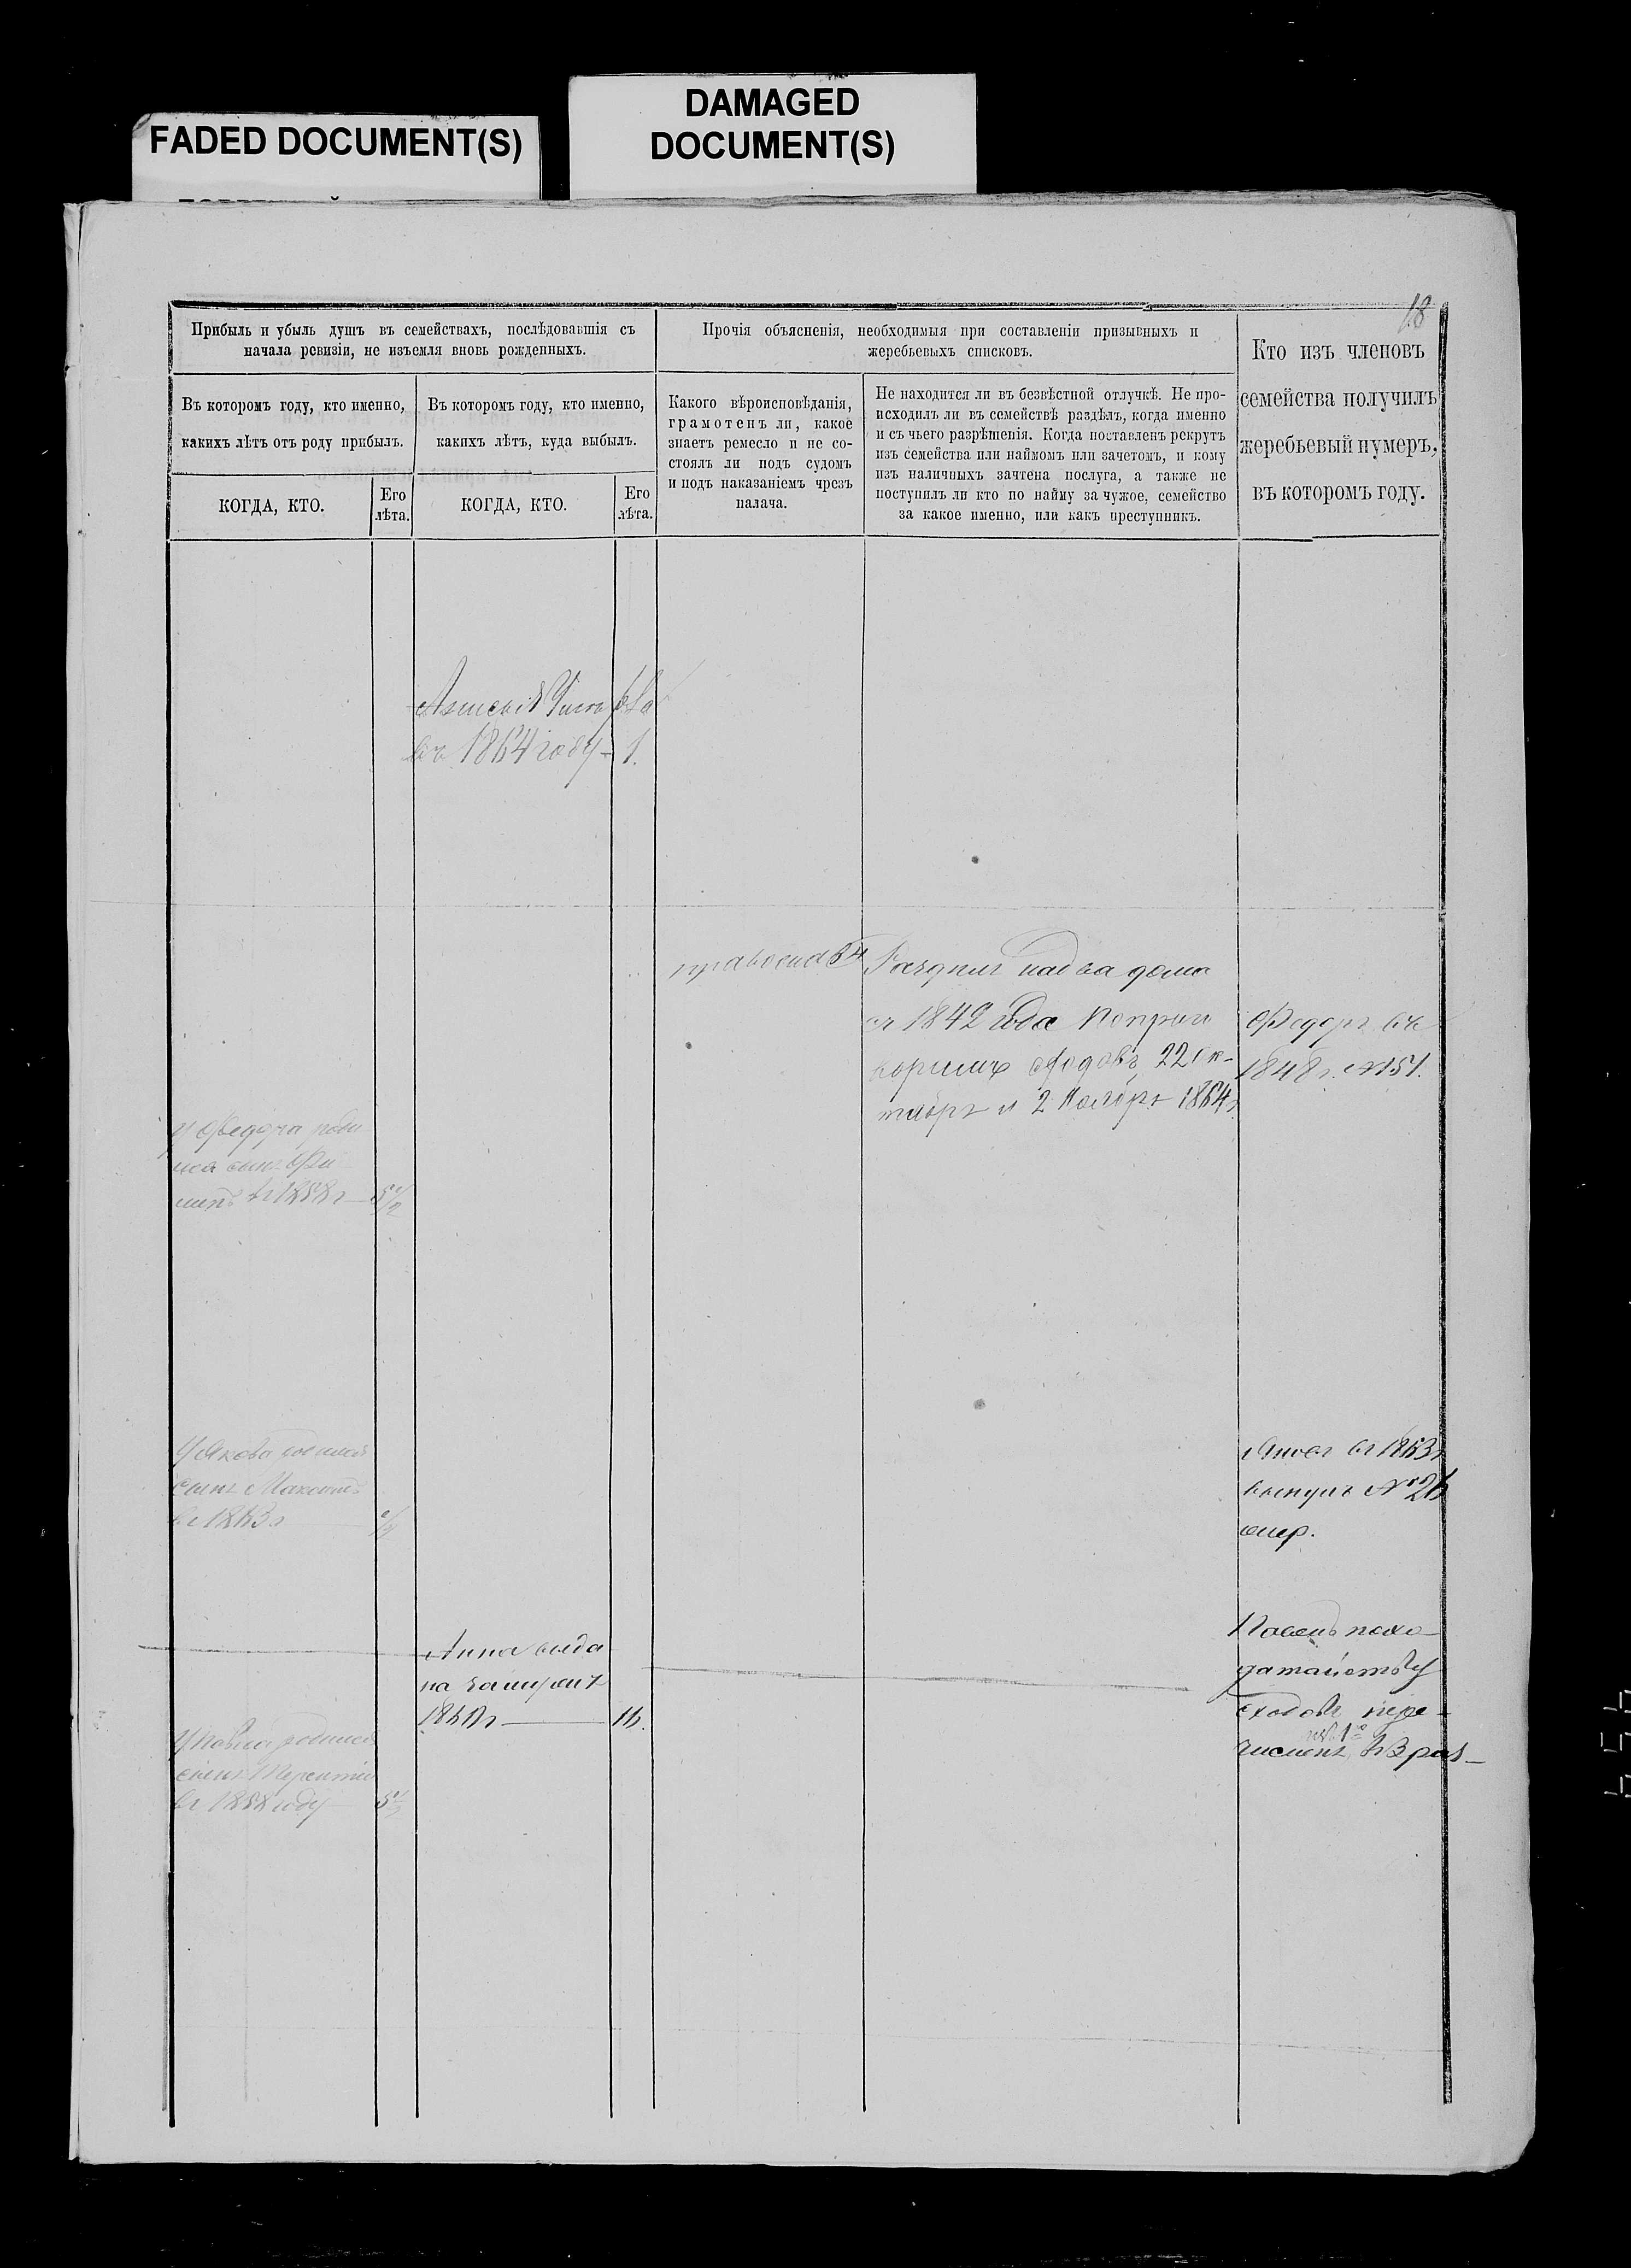 FADED DOCUMENT(S)
DAMAGED
DOCUMENT(S)
18
Прибыль и убыль душъ въ семействахъ, послѣдовавшія съ
начала ревизіи, не изъемля вновь рожденныхъ.
Въ которомъ году, кто именно,
какихъ лѣтъ отъ роду прибылъ.
КОГДА, КТО.
Его
лѣта.
Въ которомъ году, кто именно,
какихъ лѣтъ, куда выбылъ.
КОГДА, КТО.
Его
лѣта.
Прочія объясненія, необходимыя при составленіи призывныхъ и
жеребьевыхъ списковъ.
Какого вѣроисповѣданія,
грамотенъ ли, какое
знаетъ ремесло и не со-
стоялъ ли подъ судомъ
и подъ наказаніемъ чрезъ
палача.
Не находится ли въ безвѣстной отлучкѣ. Не про-
исходилъ ли въ семействѣ раздѣлъ, когда именно
и съ чьего разрѣшенія. Когда поставленъ рекрутъ
изъ семейства или наймомъ или зачетомъ, и кому
изъ наличныхъ зачтена послуга, а также не
поступилъ ли кто по найму за чужое, семейство
за какое именно, или какъ преступникъ.
Кто изъ членовъ
семейства получилъ
жеребьевый нумеръ,
въ которомъ году.
въ 1864 году - 1.
православн
на два дома
1842 года по приго
сходовъ 22 ок-
тября и 2 Ноября 1864 г.
Федоръ въ
1848 г. №151.
у Федора роди
лся сынъ Фи
липъ въ 1858 г — 5 1/2
У Якова родился
сынъ Максимъ
въ 1863 г
въ 1863 г
вынулъ № 26
Анна выда
на замужъ
— 16.
У Павла родился
сынъ Терентій
въ 1858 году
Павелъ по хо-
датайству
сходовъ пере-
численъ въ 3 раз-